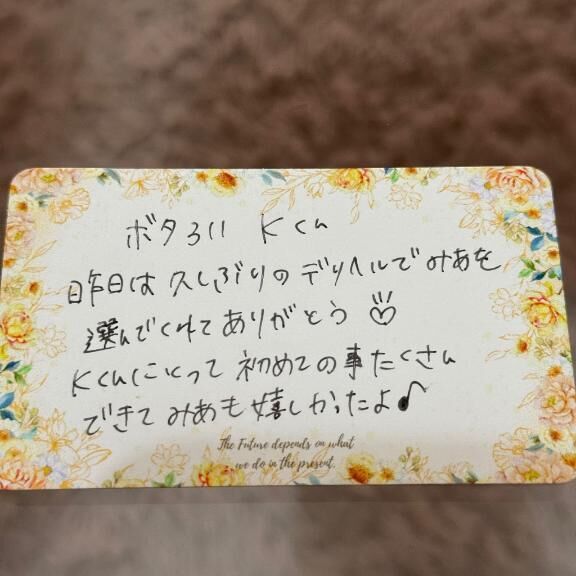 ボタ311 Kくん
昨日は久しぶりのデリヘルでみあを
選んでくれてありがとう♡
Kくんにとって初めての事たくさん
できてみあも嬉しかったよ♪
The Future depends on what
we do in the present.